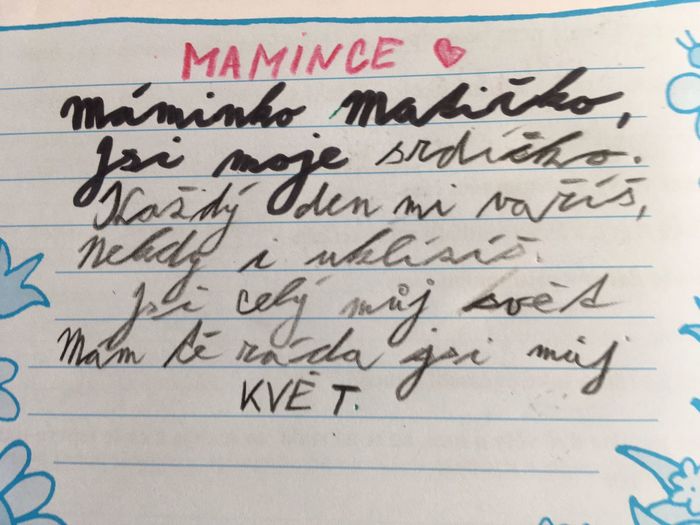 MAMINCE ♥
Máminko Matičko,
Jsi moje srdíčko.
Každý den mi vaříš,
Nekdy i uklísíš.
Jsi celý můj svět
Mám tě ráda jsi můj
KVĚT.